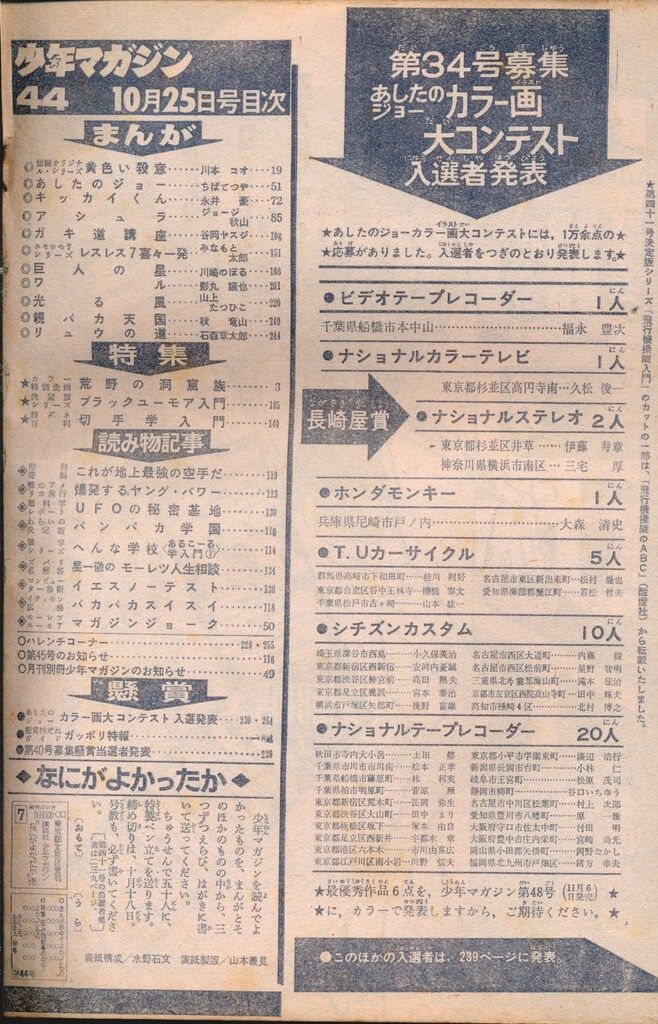 少年マガジン
44 10月25日号目次
まんが
◎黄色い殺意……川本コオ…19
◎あしたのジョー……ちばてつや…51
◎キッカイくん……永井豪…72
◎アシュラ……ジョージ秋山…85
◎ガキ道講座……谷岡ヤスジ…106
◎ホモホモ7シリーズ レスレス7喜々一発……みなもと太郎…151
◎巨人の星……川崎のぼる…166
◎ワル……影丸譲也…201
◎光る風……山上たつひこ…220
◎親バカ天国……秋竜山…240
◎リュウの道……石森章太郎…244
特集
★荒野の洞窟族……3
★ブラックユーモア入門……185
★切手学入門……140
読み物記事
◆これが地上最強の空手だ……119
◆爆発するヤング・パワー……123
◆UFOの秘密基地……130
◆バンパカ学園……110
◆へんな学校〈あるこーる学入門①〉……114
◆星一徹のモーレツ人生相談……134
◆イエスノーテスト……136
◆バカバカスイスイ……118
◆マガジンジョーク……50
○ハレンチコーナー……229・255
○第45号のお知らせ……116
○月刊別冊少年マガジンのお知らせ……49
懸賞
●あしたのジョー カラー画大コンテスト入選発表……239・264
●ガッポリ特報
●第40号募集懸賞当選者発表……239
◆なにがよかったか◆
少年マガジンを読んでよ
かったものを、まんがとそ
のほかのものの中から、三
つずつえらび、はがきに書
いて送ってください。
ちゅうせんで五十人に、
特製ペン立てを送ります。
締め切りは、十月十八日。
号数も、必ず書いてくださ
い。
〔おもて〕
〔うら〕
表紙構成／水野石文 表紙製版／山本義見
第34号募集
あしたのジョー カラー画
大コンテスト
入選者発表
★あしたのジョーカラー画大コンテストには、1万余点の★
★応募がありました。入選者をつぎのとおり発表します★
●ビデオテープレコーダー 1人
千葉県船橋市本中山……福永豊次
●ナショナルカラーテレビ 1人
東京都杉並区高円寺南…久松俊一
長崎屋賞
●ナショナルステレオ 2人
東京都杉並区井草……伊藤寿章
神奈川県横浜市南区…三宅厚
●ホンダモンキー 1人
兵庫県尼崎市戸ノ内……大森清史
●T.Uカーサイクル 5人
群馬県高崎市下和田町……桂川則好 名古屋市東区新出来町…松村徹也
東京都台東区谷中王林寺…棚橋泰文 愛知県海部郡蟹江町…若松哲夫
千葉県松戸市古ヶ崎……山本紘一
●シチズンカスタム 10人
埼玉県深谷市西島……小久保美治 名古屋市西区大道町…内藤毅
東京都新宿区西新宿…安河内憂誠 名古屋市西区松前町…星野智明
東京都渋谷区神宮前…高田熙夫 三重県北牟婁郡海山町…滝本征治
東京都足立区鹿浜……宮本泰治 京都市左京区西院高山寺町…田中輝夫
横浜市戸塚区矢部町…挽野富雄 高知市種崎4区……北村博之
●ナショナルテープレコーダー 20人
秋田市寺内大小呂……土田修 東京都小平市学園東町…溝辺浩行
千葉県市川市市川南…松本正孝 新潟県長岡市台町……小林仁
千葉県船橋市藤原町…林利実 岐阜市王宮町……松原茂司
千葉県柏市明原町……菅原熙 静岡市柳町……谷口いちゆう
東京都新宿区荒木町…長岡弥生 名古屋市中川区松葉町…村上次郎
東京都渋谷区大山町…田中水草 愛知県豊川市八幡町…原一雅
東京都板橋区坂下……塚本由章 大阪府守口市佐太中町…村田明
東京都足立区西新井…宇都木章 大阪府豊中市庄内栄町…宮崎尚元
東京都港区六本木……川田喜広 岡山県小田郡矢掛町…岡野たかし
東京都江戸川区南小岩…川野信夫 福岡県北九州市戸畑区…緒方幸夫
★最優秀作品6点を、少年マガジン第48号(11月6日発売)★
★に、カラーで発表しますから、ご期待ください。★
●このほかの入選者は、239ページに発表。
★第四十一号決定版シリーズ「飛行機操縦入門」のカットの一部は、「飛行機操縦のABC」(酣燈社)から転載いたしました。